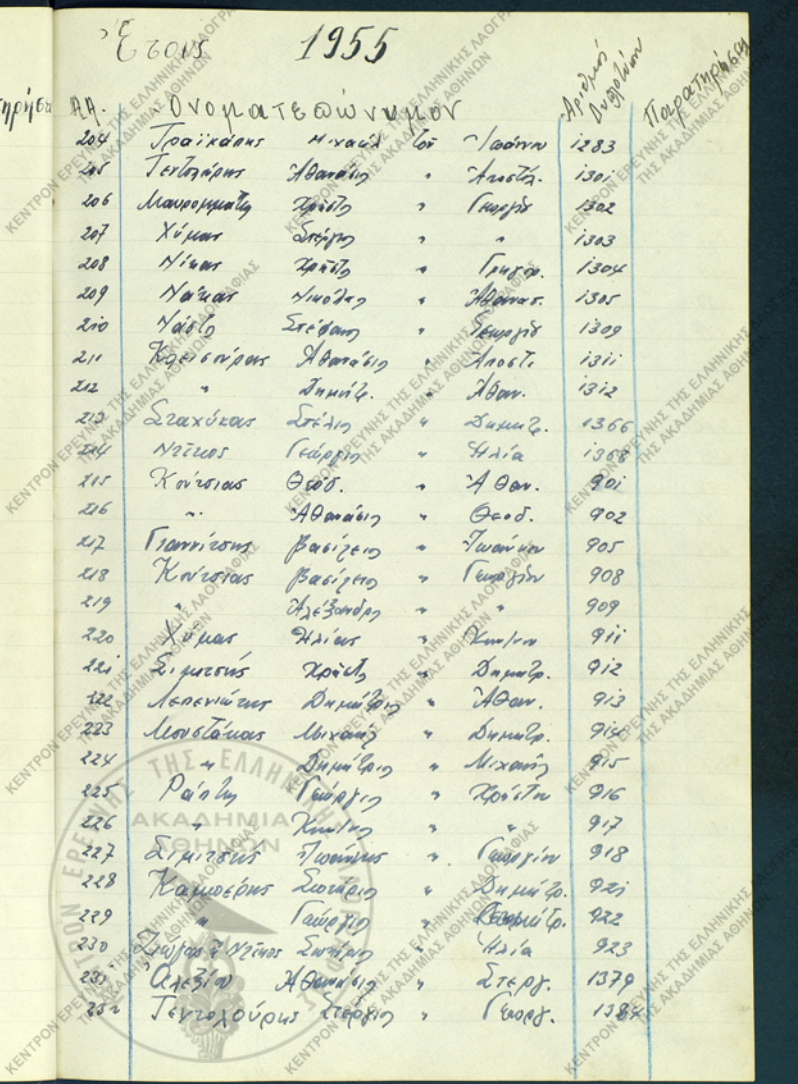 Ἔτους 1955
Α.Α. Ὀνοματεπώνυμον Ἀριθμός Παρατηρήσεις
204 Γραικάρης Μιχαήλ τοῦ Ἰωάννου 1283
205 Ἀθανάσιος " Ἀποστόλ. 1301
206 Μαυρομμάτης Χρῆστος " Γεωργίου 1302
207 Χύμας Στέργιος " " 1303
208 Νίκας Χρῆστος " Γρηγορ. 1304
209 Νάκας Νικόλαος " Ἀθανασ. 1305
210 Νάστος Στέφανος " Γεωργίου 1309
211 Κλεισούρας Ἀθανάσιος " Ἀποστ. 1311
212 " Δημήτρ. " Ἀθαν. 1312
213 Σταχύκας Στέλιος " Δημητρ. 1366
214 Ντίκος Γεώργιος " Ἠλία 1368
215 Κούτσιας Θεόδ. " Ἀθαν. 901
216 " Ἀθανάσιος " Θεοδ. 902
217 Γιαννίτσης Βασίλειος " Ἰωάννου 905
218 Κούτσιας Βασίλειος " Γεωργίου 908
219 " Ἀλέξανδρος " " 909
220 Χύμας Ἠλίας " Κων/νου 911
221 Σιμιτσής Χρῆστος " Δημητρ. 912
222 Λεπενιώτης Δημήτριος " Ἀθαν. 913
223 Μουστάκας Μιχαήλ " Δημητρ. 914
224 " Δημήτριος " Μιχαήλ 915
225 Ράπτης Γεώργιος " Χρήστου 916
226 " Κων/νος " " 917
227 Σιμιτσής Ἰωάννης " Γεωργίου 918
228 Καμπέρης Σωτήριος " Δημητρ. 921
229 " Γεώργιος " 922
230 Ντίκος Σωτήριος " Ἠλία 923
231 Ἀλεξίου Ἀθανάσιος " Στεργ. 1379
232 Γεντολούρης Στέργιος " Γεωργ. 1384
ΚΕΝΤΡΟΝ ΕΡΕΥΝΗΣ ΤΗΣ ΕΛΛΗΝΙΚΗΣ ΛΑΟΓΡΑΦΙΑΣ
ΤΗΣ ΑΚΑΔΗΜΙΑΣ ΑΘΗΝΩΝ
ΑΚΑΔΗΜΙΑ
ΑΘΗΝΩΝ